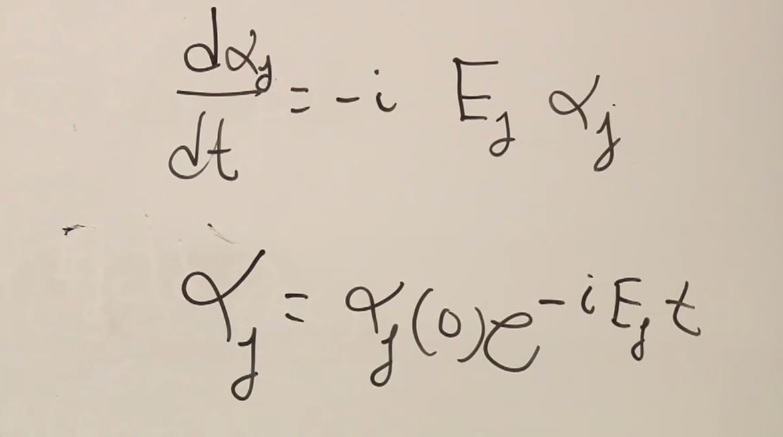 dα_j/dt = -i E_j α_j
α_j = α_j(0)e^{-iE_jt}